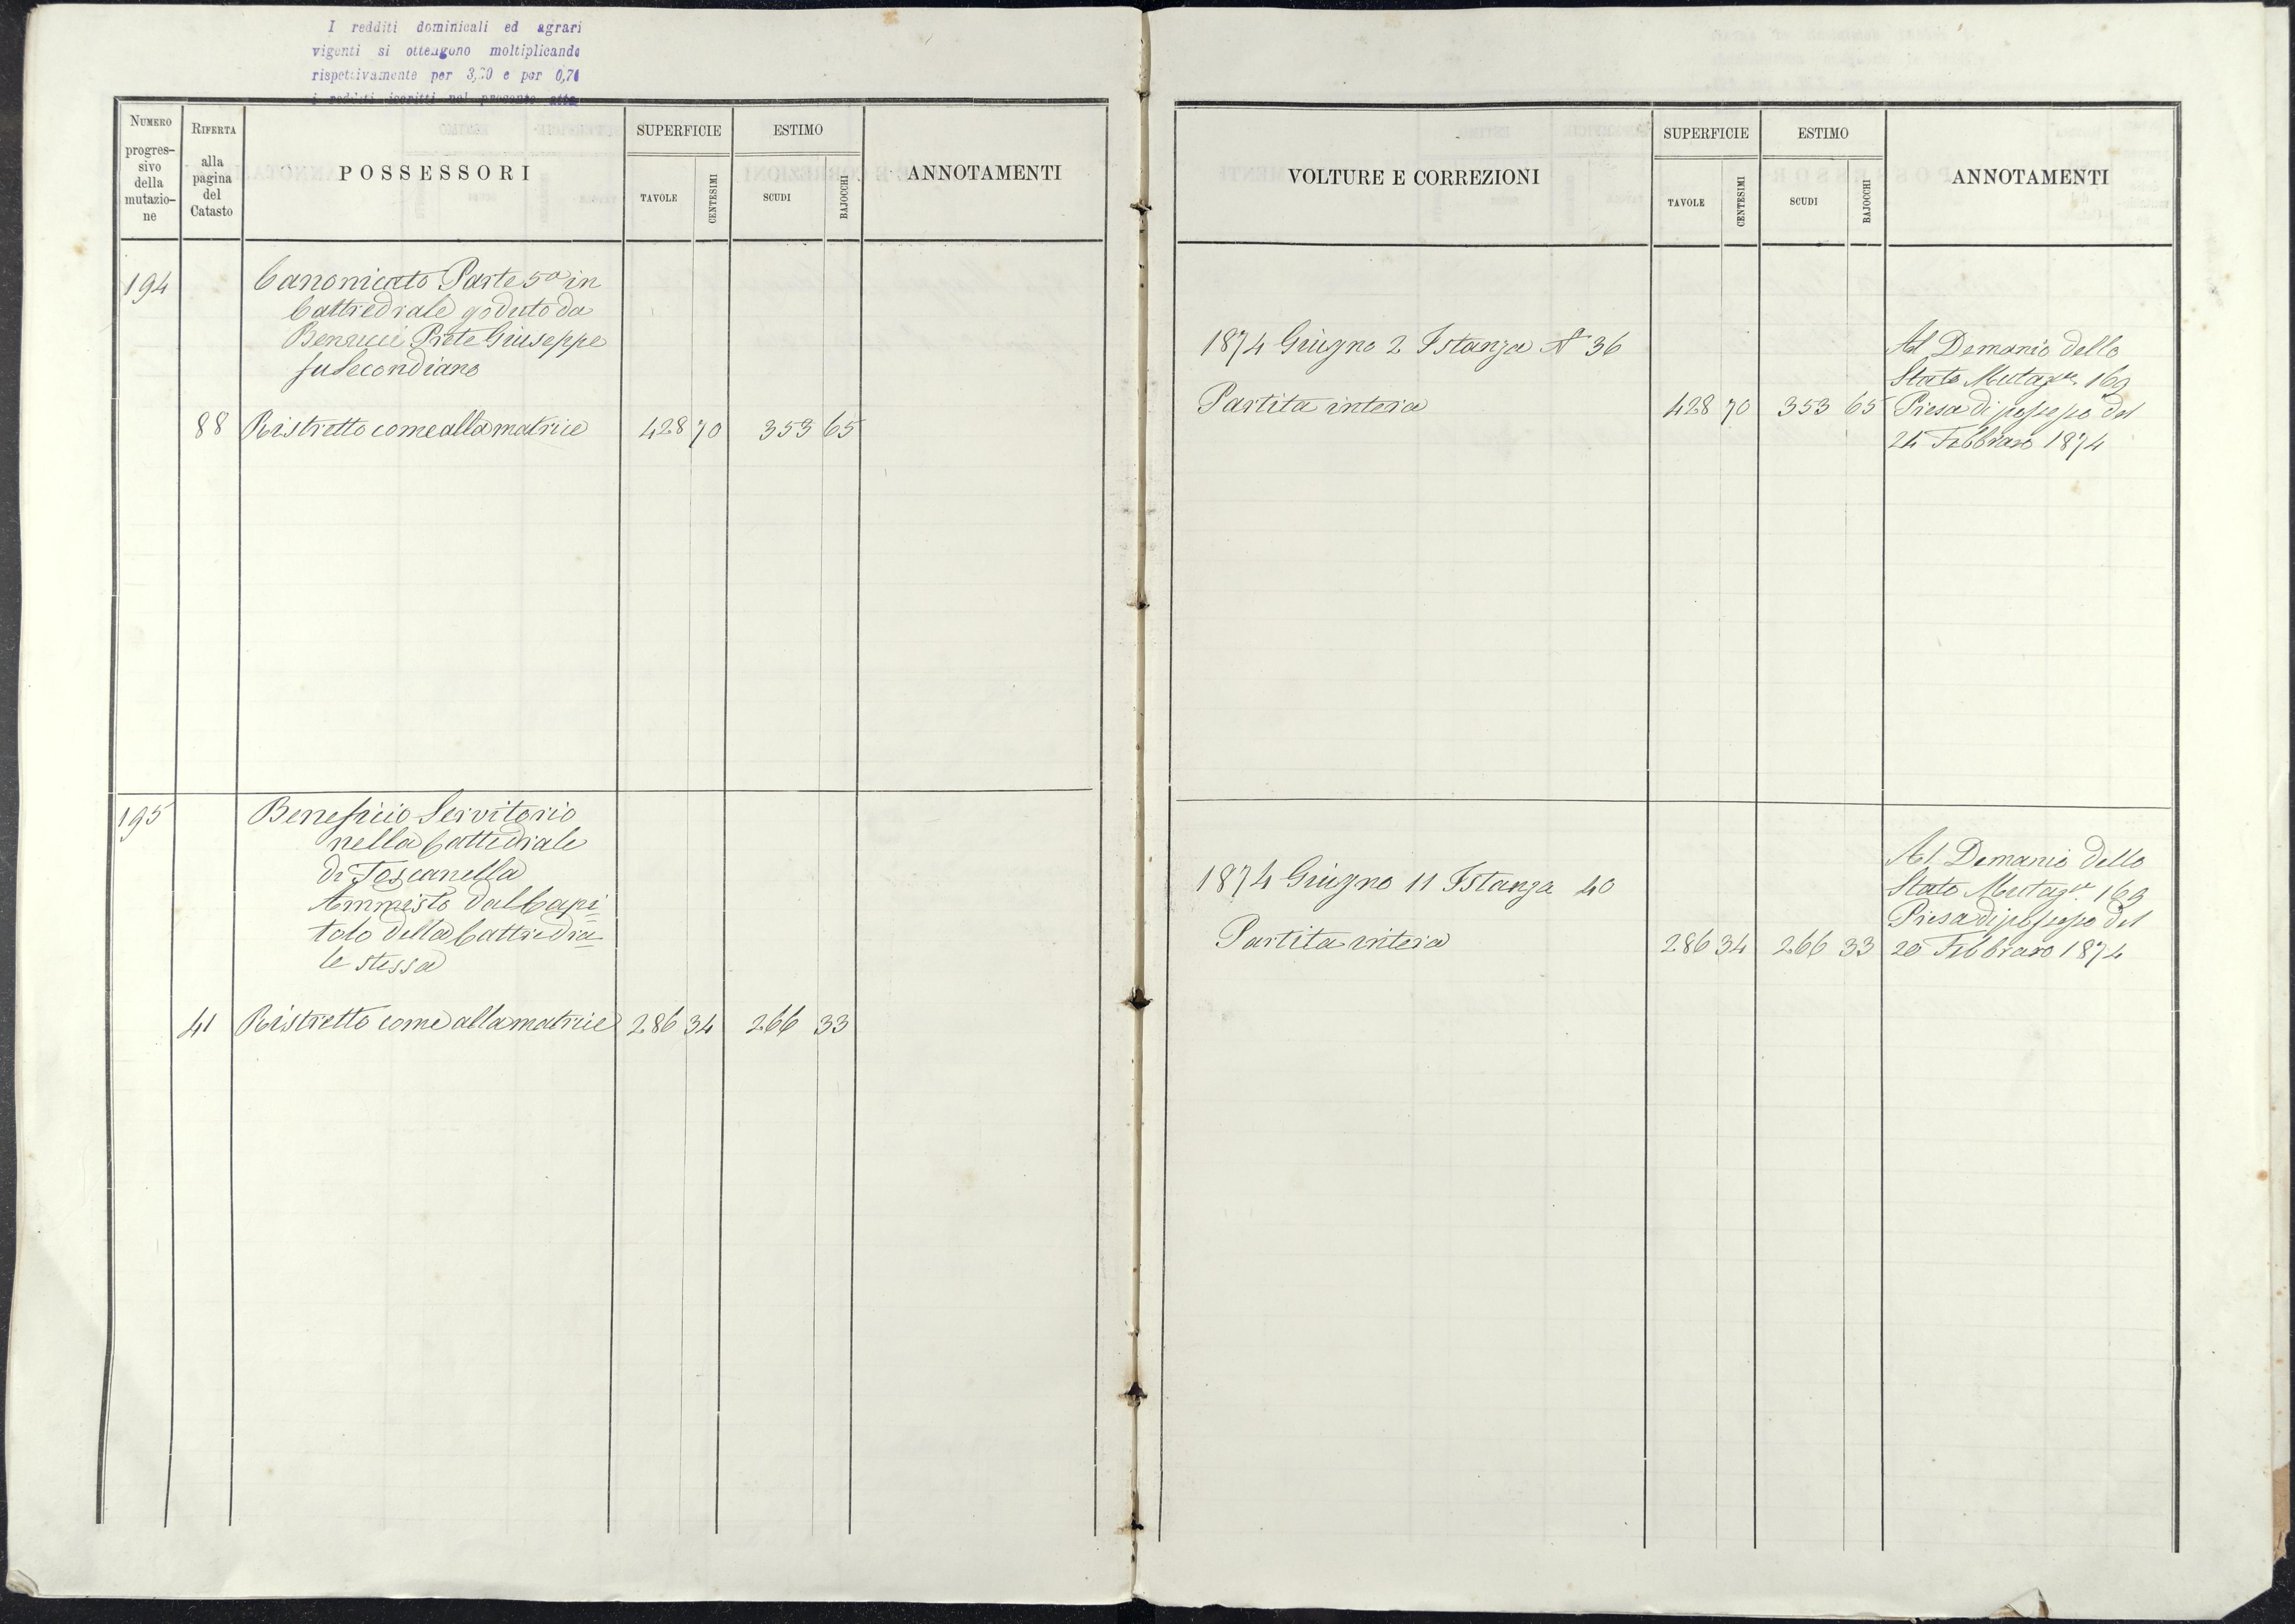 I redditi dominicali ed agrari
vigenti si ottengono moltiplicando
rispettivamente per 3,20 e per 0,70
i redditi iscritti nel presente atto
NUMERO
progres-
sivo
della
mutazio-
ne
RIFERTA
alla
pagina
del
Catasto
POSSESSORI
SUPERFICIE
TAVOLE
CENTESIMI
ESTIMO
SCUDI
BAJOCCHI
ANNOTAMENTI
194
Canonicato Parte 5a in
Cattredrale goduto da
Benucci Prete Giuseppe
fu Secondiano
88 Ristretto come alla matrice 428 70 353 65
195
Beneficio Servitorio
nella Cattedrale
di Toscanella
Ammisto dal Capi=
tolo della Cattredra=
le stessa
41 Ristretto come alla matrice 286 34 266 33
VOLTURE E CORREZIONI
SUPERFICIE
TAVOLE
CENTESIMI
ESTIMO
SCUDI
BAJOCCHI
ANNOTAMENTI
1874 Giugno 2 Istanza N 36
Partita intera 428 70 353 65
Al Demanio dello
Stato Mutaz.ne 169
Presa di possesso del
24 Febbraro 1874
1874 Giugno 11 Istanza 40
Partita intera 286 34 266 33
Al Demanio dello
Stato Mutaz.ne 169
Presa di possesso del
20 Febbraro 1874